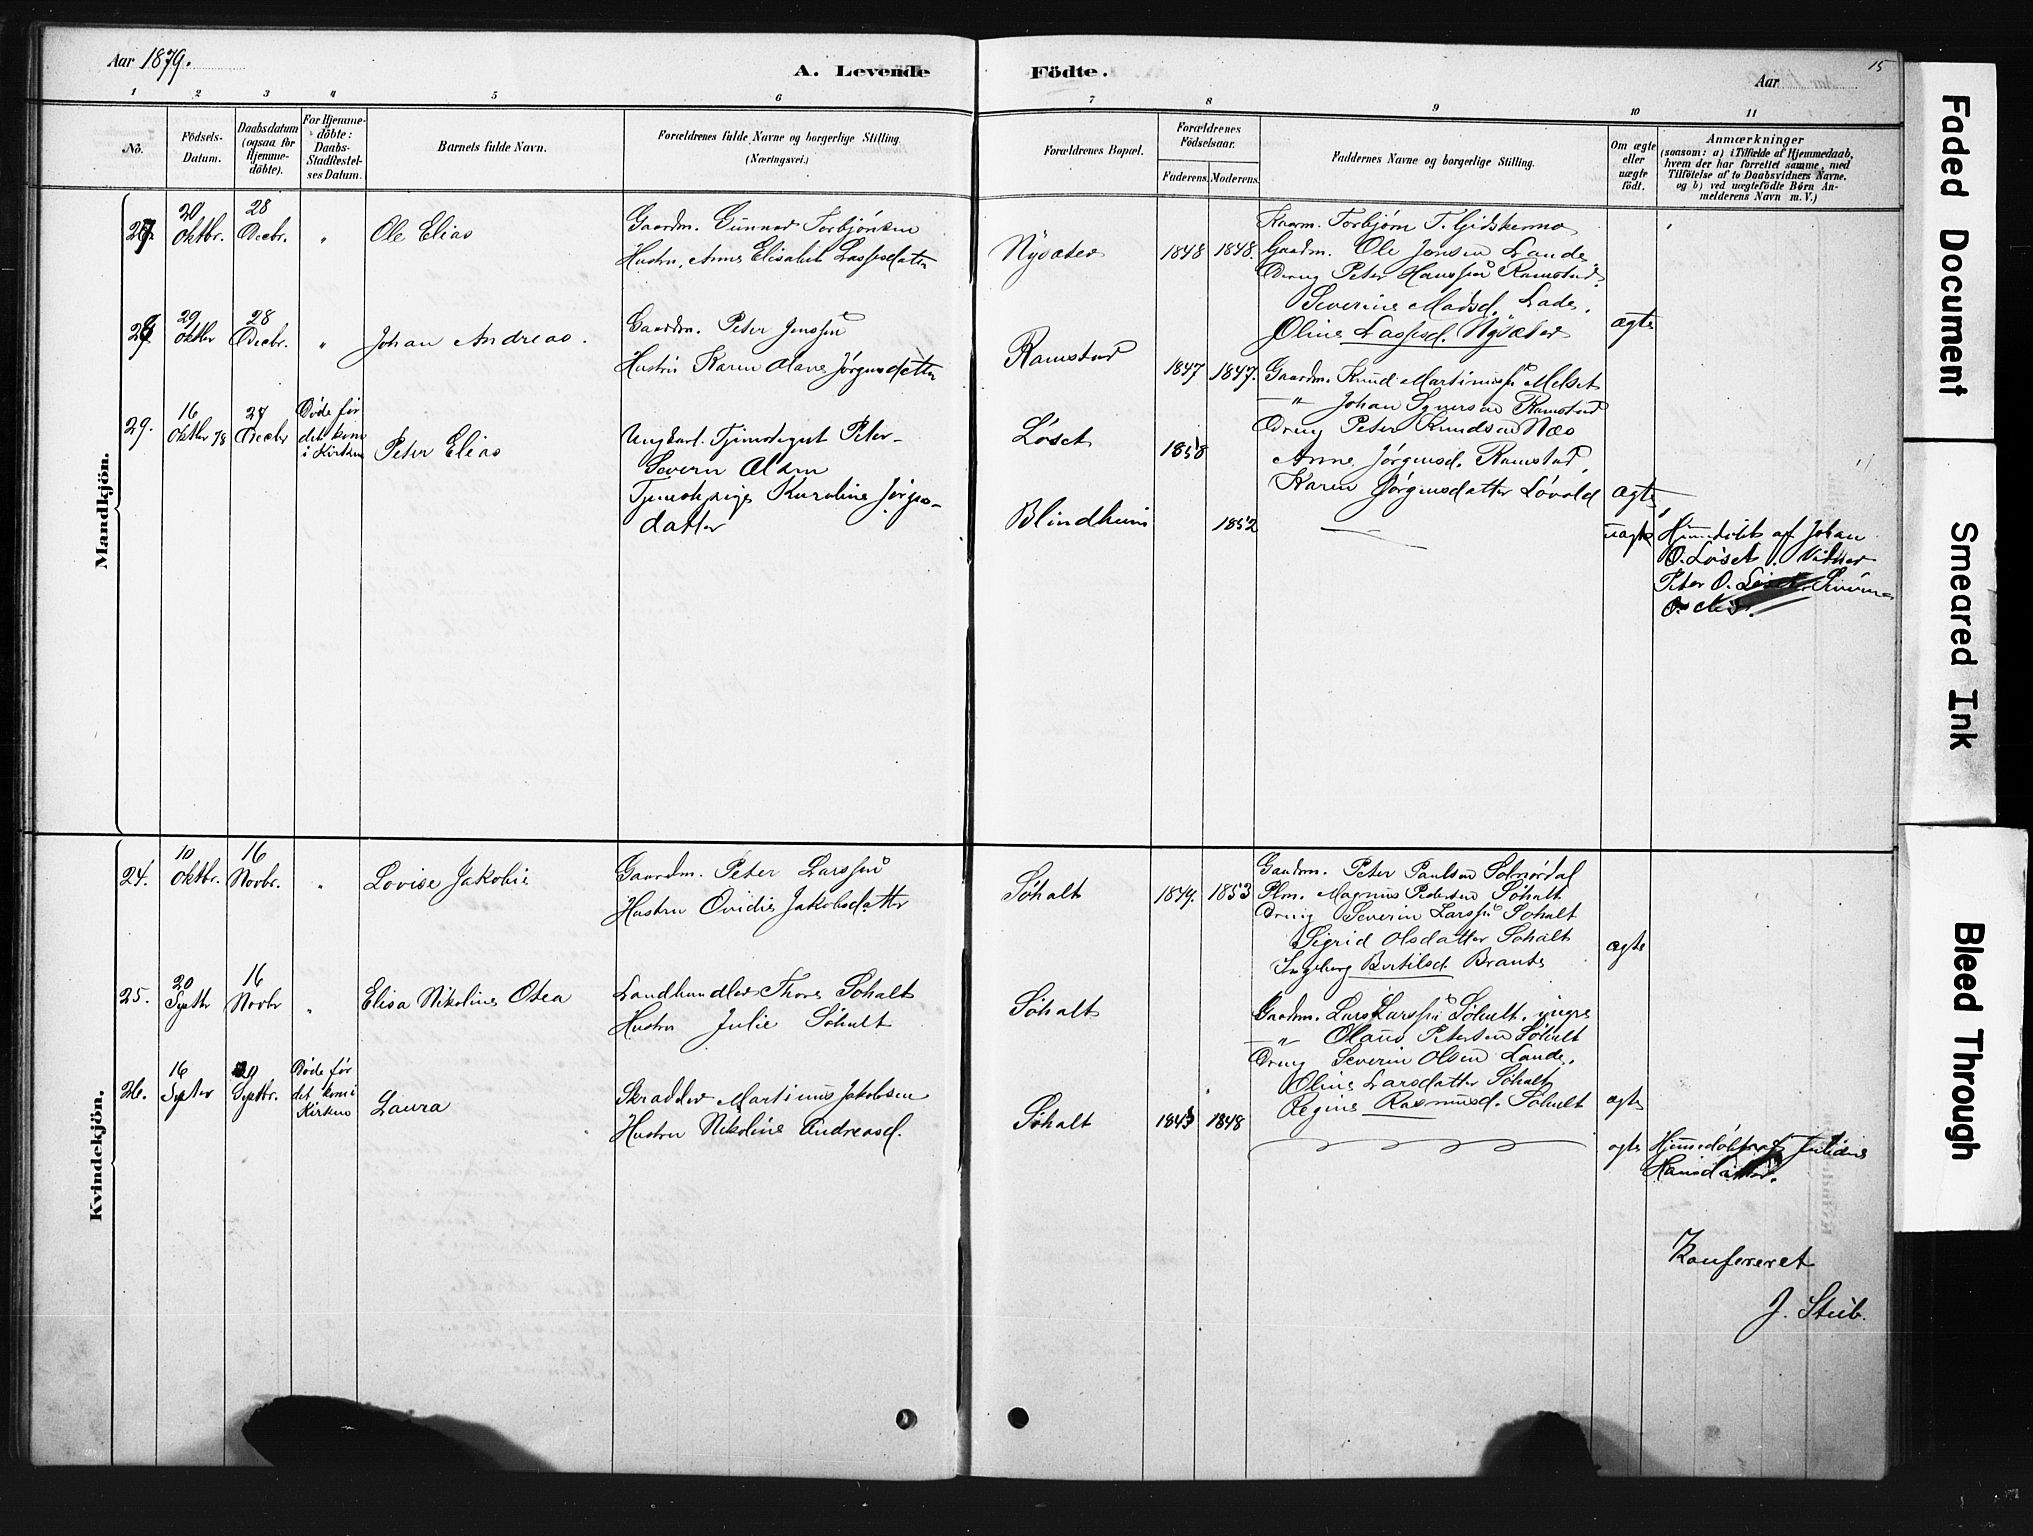 Aar 1879.
A. Levende Födte.
Aar
15
1 2 3 4 5 6 7 8 9 10 11
No.
Födsels-
Datum.
Daabsdatum
(ogsaa for
Hjemme-
döbte).
For Hjemme-
döbte:
Daabs-
Stadfæstel-
ses Datum.
Barnets fulde Navn.
Forældrenes fulde Navne og borgerlige Stilling.
(Næringsvei.)
Forældrenes Bopæl.
Forældrenes
Födselsaar.
Faderens. Moderens.
Faddernes Navne og borgerlige Stilling.
Om ægte
eller
uægte
födt.
Anmærkninger
(saasom: a) i Tilfælde af Hjemmedaab,
hvem der har forrettet samme, med
Tilföielse af to Daabsvidners Navne.
og b) ved uægtefödte Börn An-
melderens Navn m. V.)
Mandkjön.
27
20
Oktbr.
28
Decbr.
"
Ole Elias
Gaardm. Gunnar Torbjönsen
Hustru, Anne Elisabet Lassesdatter
Nysæter
1848 1848.
Torbjørn T. Gidskemo
Gaardm. Ole Jonsen Lande.
Dreng Peter Hanssen Ramstad.
Severine Madsd. Lade.
Oline Lassesd. Nysæter
ægte
28
29
Oktbr
28
Decbr.
"
Johan Andreas.
Gaardm. Peter Jenssen
Hustru Karen Olane Jørgensdatter
Ramstad
1847 1847.
Gaardm. Knud Martinussen Melset
" Johan Syversen Ramstad
Dreng Peter Knudsen Næs
Anne Jørgensd. Ramstad.
Karen Jørgensdatter Løvold
ægte
29.
16
Oktbr 78
27
Decbr
Døde før
det kom
i Kirken
Peter Elias
Ungkarl. Tjenestegut Peter
Severin Olsen
Tjenestepige Karoline Jørgens-
datter
Løset
1858
Blindheim
1852
uægte
Hjemmedøbt af Johan
O. Løset. Vidner
Peter O. Løset
Kvindekjön.
24.
10
Oktbr.
16
Novbr.
"
Lovise Jakobie
Gaardm. Peter Larssen
Hustru Ovidie Jakobsdatter
Søholt
1849. 1853
Gaardm. Peter Paulsen Solnørdal
Plm. Magnus Pedersen Søholt
Dreng Severin Larssen Søholt
Sigrid Olsdatter Søholt
Ingeborg Bertilsd. Brante
ægte
25.
20
Septbr
16
Novbr
"
Elisa Nikoline Otea
Landhandler Thore Søholt
Hustru Julie Søholt
Søholt
Gaardm. Lars Larssen Søholt. yngre
" Olaus Petersen Søholt
Dreng Severin Olsen Lande.
Oline Larsdatter Søholt
Regine Rasmusd. Søholt
ægte
26.
16
Septbr
Septbr.
Døde før
det kom i
Kirken
Laura
Skrædder Martinus Jakobsen
Hustru Nikoline Andreasd.
Søholt
1843 1848
ægte
Hjemmedøbt af
Hansdatter.
Konfereret
J. Stub.
Faded Document
Smeared Ink
Bleed Through